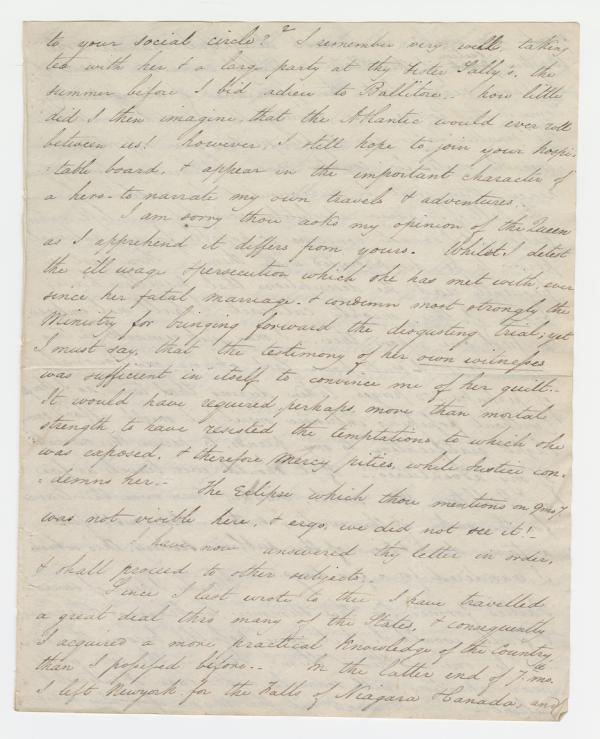 to your social circle? I remember very well, taking
tea with her & a large party at thy Sister Sally's, the
summer before I bid adieu to Ballitore.. how little
did I then imagine, that the Atlantic would ever roll
between us! however, I still hope to join your hospi-
-table board, & appear in the important character of
a hero - to narrate my own travels & adventures..
I am sorry thou asks my opinion of the Queen
as I apprehend it differs from yours. Whilst I detest
the ill usage & persecution which she has met with, ever
since her fatal marriage - & condemn most strongly the
Ministry for bringing forward the disgusting trial; yet
I must say, that the testimony of her own witnesses
was sufficient in itself to convince me of her guilt..
It would have required, perhaps, more than mortal
strength, to have resisted the temptations to which she
was exposed, & therefore Mercy pities, while Justice con-
-demns her.- The Eclipse which thou mentions on 9mo 7
was not visible here, & ergo, we did not see it!-
I have now answered thy letter in order,
& shall proceed to other subjects..
Since I last wrote to thee I have travelled
a great deal thro many of the States, & consequently
I acquired a more practical Knowledge of the Country
than I possessed before.. In the latter end of 7 mo.
I left Newyork for the Falls of Niagara Canada, and